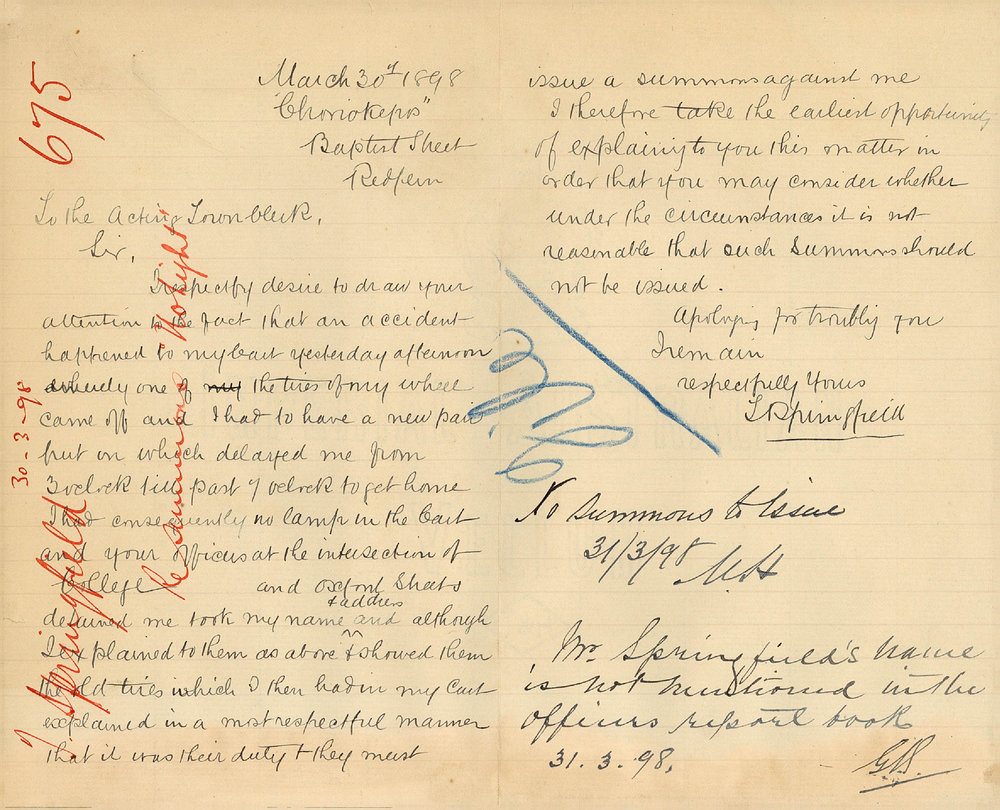 March 30th 1898
"Choriokepos"
Baptist Street
Redfern
To the Acting Town Clerk,
Sir,
I respectfy desire to draw your
attention to the fact that an accident
happened to my Cart yesterday afternoon
whereby one of my the tires of my wheel
came off and I had to have a new pair
put on which delayed me from
3 oclock till past 7 oclock to get home
I had consequently no lamp in the Cart
and your officers at the intersection of
College and Oxford Streets
detained me took my name and although
& address
I explained to them as above & showed them
the old tires which I then had in my Cart
explained in a most respectful manner
that it was their duty & they must
issue a summons against me
I therefore take the earliest opportunity
of explaing to you this matter in
order that you may consider whether
under the circumstances it is not
reasonable that such summons should
not be issued.
Apologig for troublig you
I remain
respectfully yours
Springfield
No summons to issue
31/3/98
M.H
Mr Springfield's name
is not mentioned in the
officers report book
31.3.98.
G.B.
675
30-3-98
J Springfield
re summons "No light"